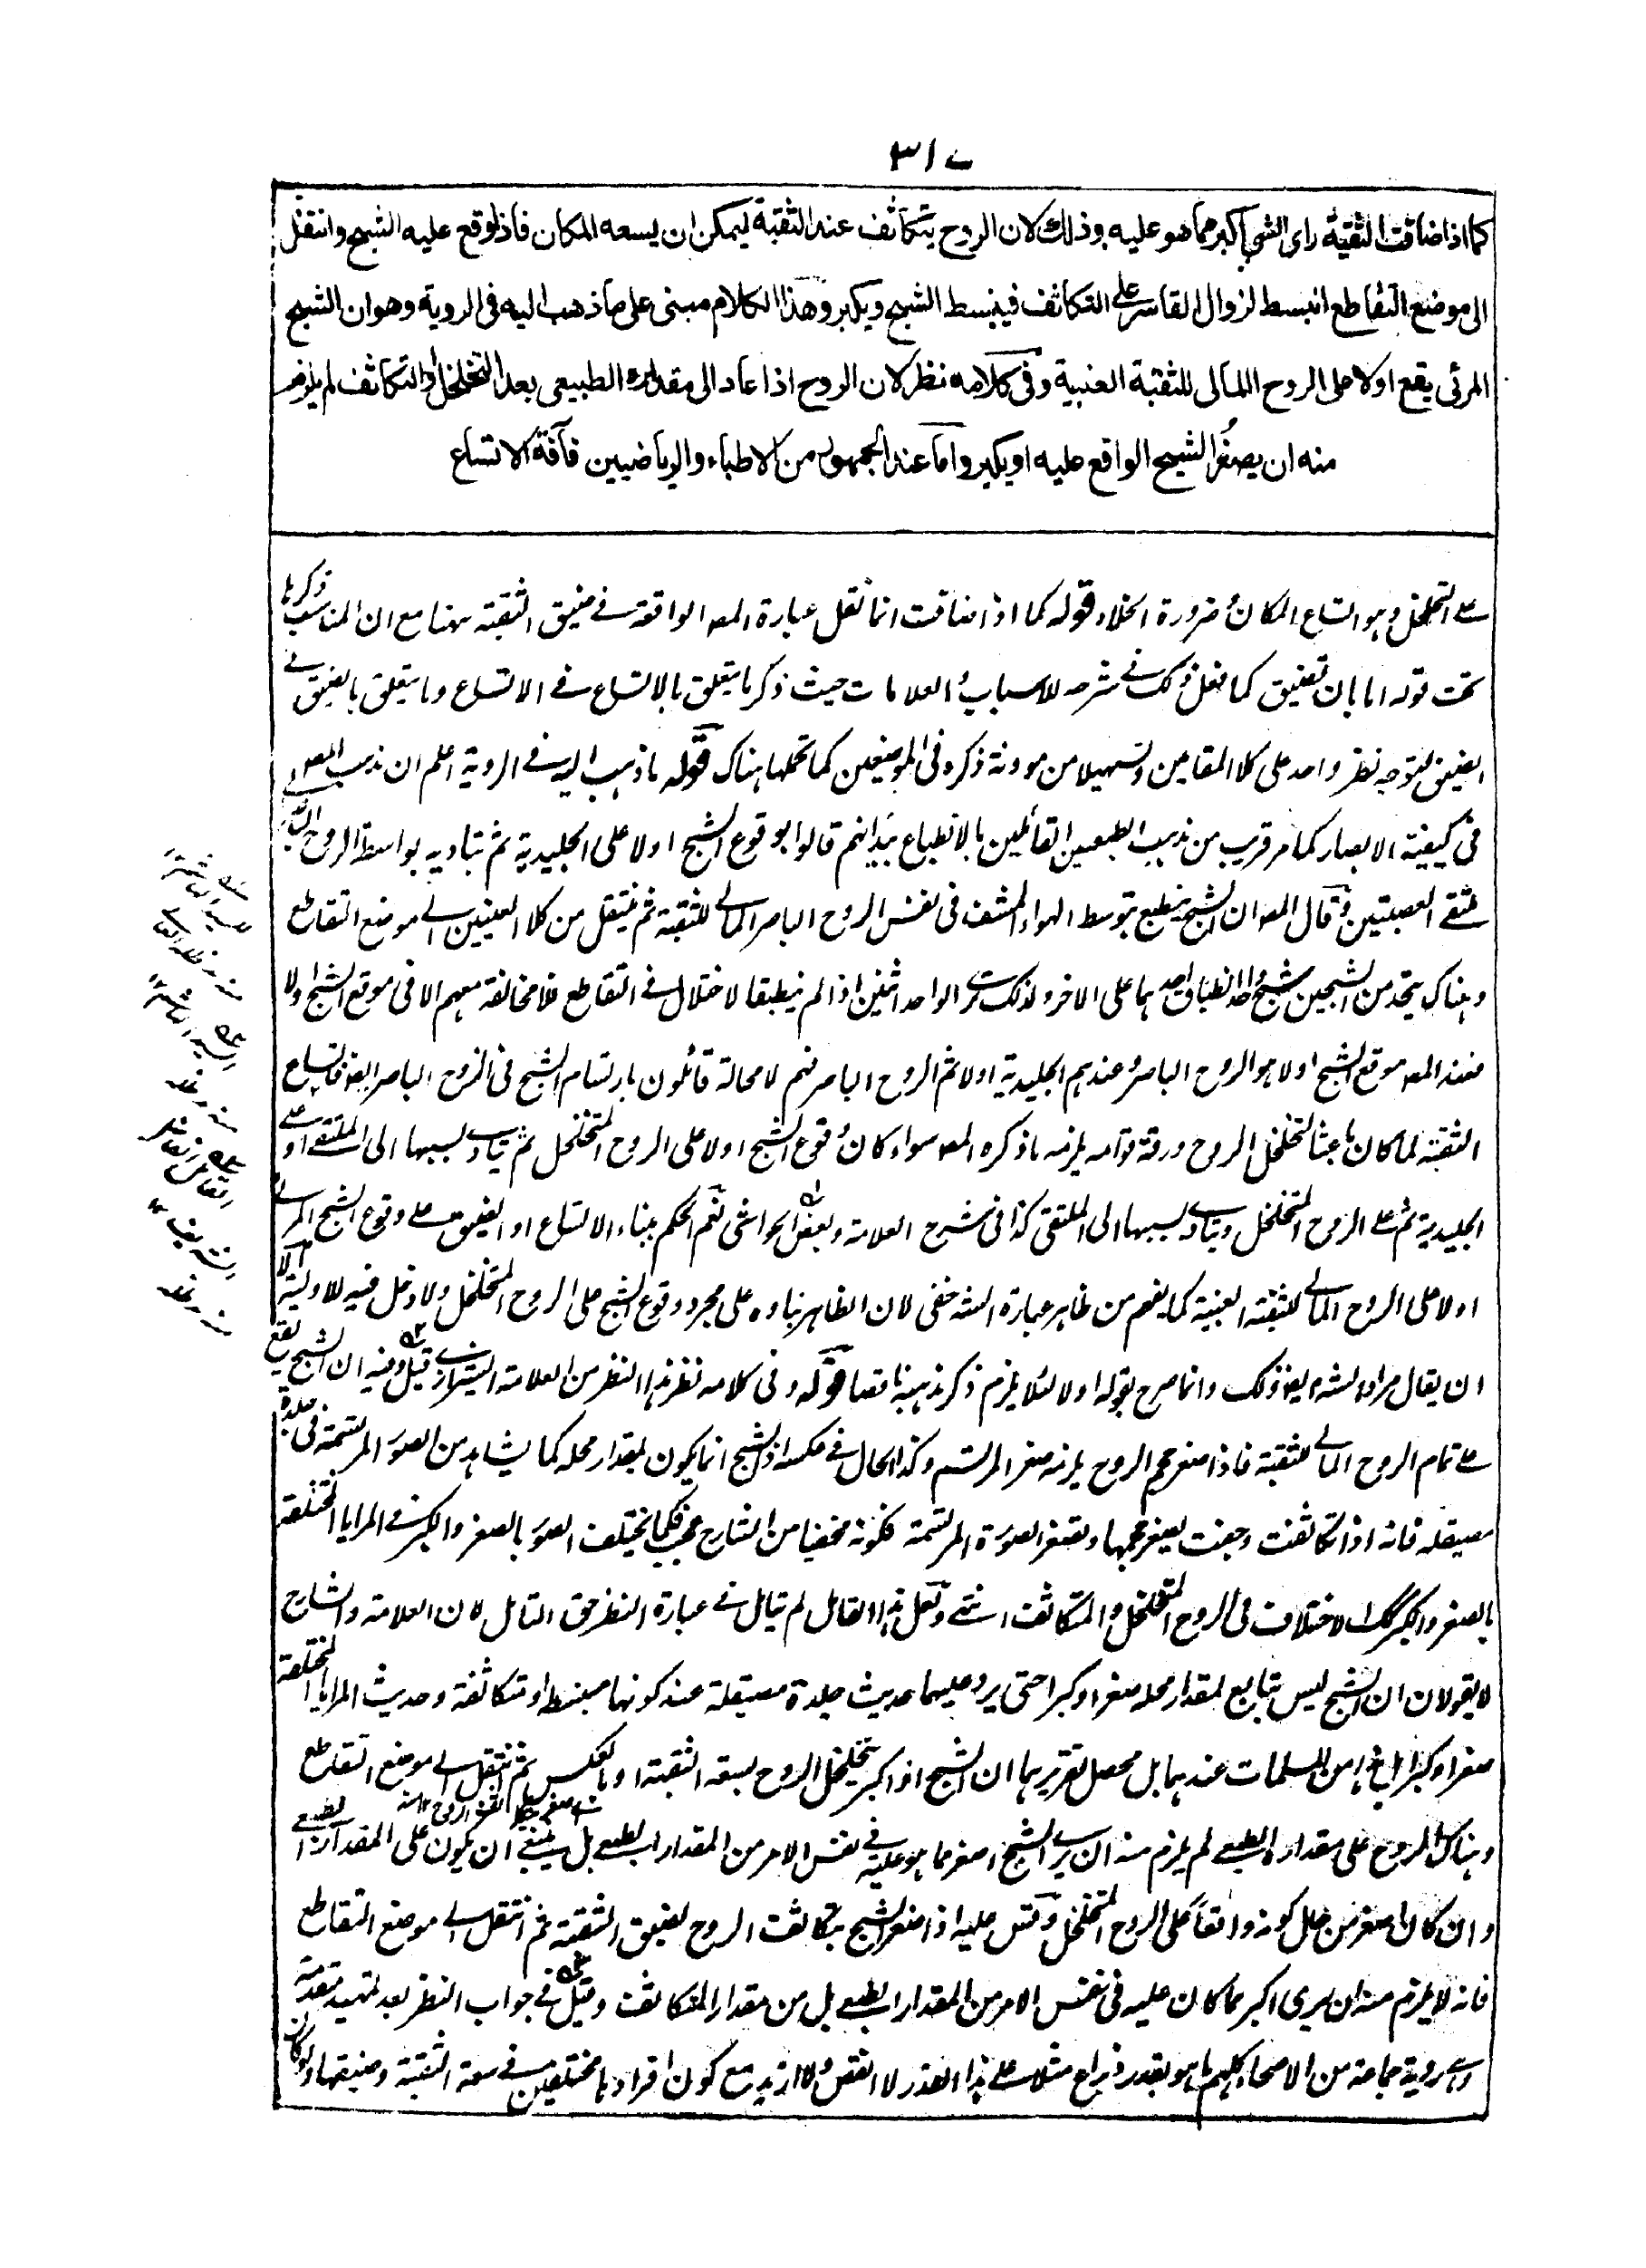 ٣١٧
كما اذا ضاقت الثقبة راى الشئ اكبر مما هو عليه وذلك لان الروح يتكاثف عند الثقبة ليمكن ان يسعه المكان فاذا وقع عليه الشبح وانتقل
الى موضع التقاطع انبسط لزوال القاسر على التكاثف فينبسط الشبح ويكبر وهذا الكلام مبنى على ما ذهب اليه فى الروية وهو ان الشبح
المرئى يقع اولا على الروح المالى للثقبة العنبية وفى كلامه نظر لان الروح اذا عاد الى مقداره الطبيعى بعد التخلخل او التكاثف لم يلزم
منه ان يصغر الشبح الواقع عليه او يكبر واما عند الجمهور من الاطباء والرياضيين فآفة الاتساع
على التخلخل وهو اتساع المكان وضرورة الخلاء قوله كما اذا ضاقت انما نقل عبارة المصـ الواقعة فى ضيق الثقبة ههنا مع ان المناسب ذكرها
تحت قوله اما بان تضيق كما فعل ذلك فى شرحه للاسباب والعلامات حيث ذكر ما يتعلق بالاتساع فى الاتساع وما يتعلق بالضيق فى
الضيق ليتوجه نظر واحد على كلا المقامين وتسهيلا من مؤونة ذكره فى الموضعين كما تحملها هناك قوله ما ذهب اليه فى الروية اعلم ان مذهب المصـ
فى كيفية الابصار كما مر قريب من مذهب الطبعيين القائلين بالانطباع بيد انهم قالوا بوقوع الشبح اولا على الجليدية ثم تباديه بواسطة الروح الى
ملتقى العصبتين وقال المصـ ان الشبح ينطبع بتوسط الهواء المشف فى نفس الروح الباصر المالى للثقبة ثم ينتقل من كلا العينين الى موضع التقاطع
وهناك يتحد من الشبحين شبح واحد لانطباق احدهما على الاخر ولذلك يرى الواحد اثنين اذا لم ينطبقا لاختلال فى التقاطع فلا مخالفة معهم الا فى موقع الشبح اولا
فعند المصـ موقع الشبح اولا هو الروح الباصر وعندهم الجليدية اولا ثم الروح الباصر فهم لا محالة قائلون بارتسام الشبح فى الروح الباصر ايضا فاتساع
الثقبة لما كان باعثا لتخلخل الروح ورقة قوامه يلزمه ما ذكره المصـ سواء كان وقوع الشبح اولا على الروح المتخلخل ثم يتادى بسببها الى الملتقى او على
الجليدية ثم على الروح المتخلخل ويتادى بسببها الى الملتقى كذا فى شرح العلامة وبعض الحواشى نعم الحكم ببناء الاتساع او الضيق على وقوع الشبح المرئى
اولا على الروح المالى للثقبة العنبية كما يفهم من ظاهر عبارة الشه خفى لان الظاهر بناؤه على مجرد وقوع الشبح على الروح المتخلخل ولا دخل فيه للاولية الا
ان يقال مراد الشه ايضا ذلك وانما صرح بقوله اولا لئلا يلزم ذكر مذهبه ناقصا قوله وفى كلامه نظر هذا النظر من العلامة الشيرازى قيل وفيه ان الشبح يقع
على تمام الروح المالى للثقبة فاذا صغر حجم الروح يلزمه صغر المرتسم وكذا الحال فى عكسه اذ الشبح انما يكون بمقدار محله كما يشاهد من الصور المرتسمة فى جلدة
صيقلة فانه اذا تكاثفت وجفت يصغر حجمها وتصغر الصورة المرتسمة فكونه مخفيا من الشارح عجيب فكما يختلف الصور بالصغر والكبر فى المرايا المختلفة
بالصغر والكبر كذلك الاختلاف فى الروح المتخلخل والمتكاثف انتهى ولعل هذا القائل لم يتامل فى عبارة النظر حق التامل لان العلامة والشارح
لا يقولان ان الشبح ليس بتابع لمقدار محله صغرا وكبرا حتى يرد عليهما حديث جلدة مصيقلة عند كونها منبسطة او متكاثفة وحديث المرايا المختلفة
صغرا وكبرا بل هذا من المسلمات عندهما بل محصل تقريرهما ان الشبح اذا كبر بتخلخل الروح بسعة الثقبة او بالعكس ثم انتقل الى موضع التقاطع
وهناك الروح على مقداره الطبيعى لم يلزم منه ان يرى الشبح اصغر مما هو عليه فى نفس الامر من المقدار الطبيعى بل ينبغى ان يكون على المقدار الطبيعى
وان كان اصغر من حال كونه واقعا على الروح المتخلخل وقس عليه اذا صغر الشبح بتكاثف الروح لضيق الثقبة ثم انتقل الى موضع التقاطع
فانه لا يلزم منه ان يرى اكبر مما كان عليه فى نفس الامر من المقدار الطبيعى بل من مقدار المتكاثف وقيل فى جواب النظر بعد تمهيد مقدمة
وهى روية جماعة من الاصحاء كلهم ما هو بقدر ذراع مثلا على هذا القدر لا انقص ولا ازيد مع كون افرادها مختلفين فى سعة الثقبة وضيقها